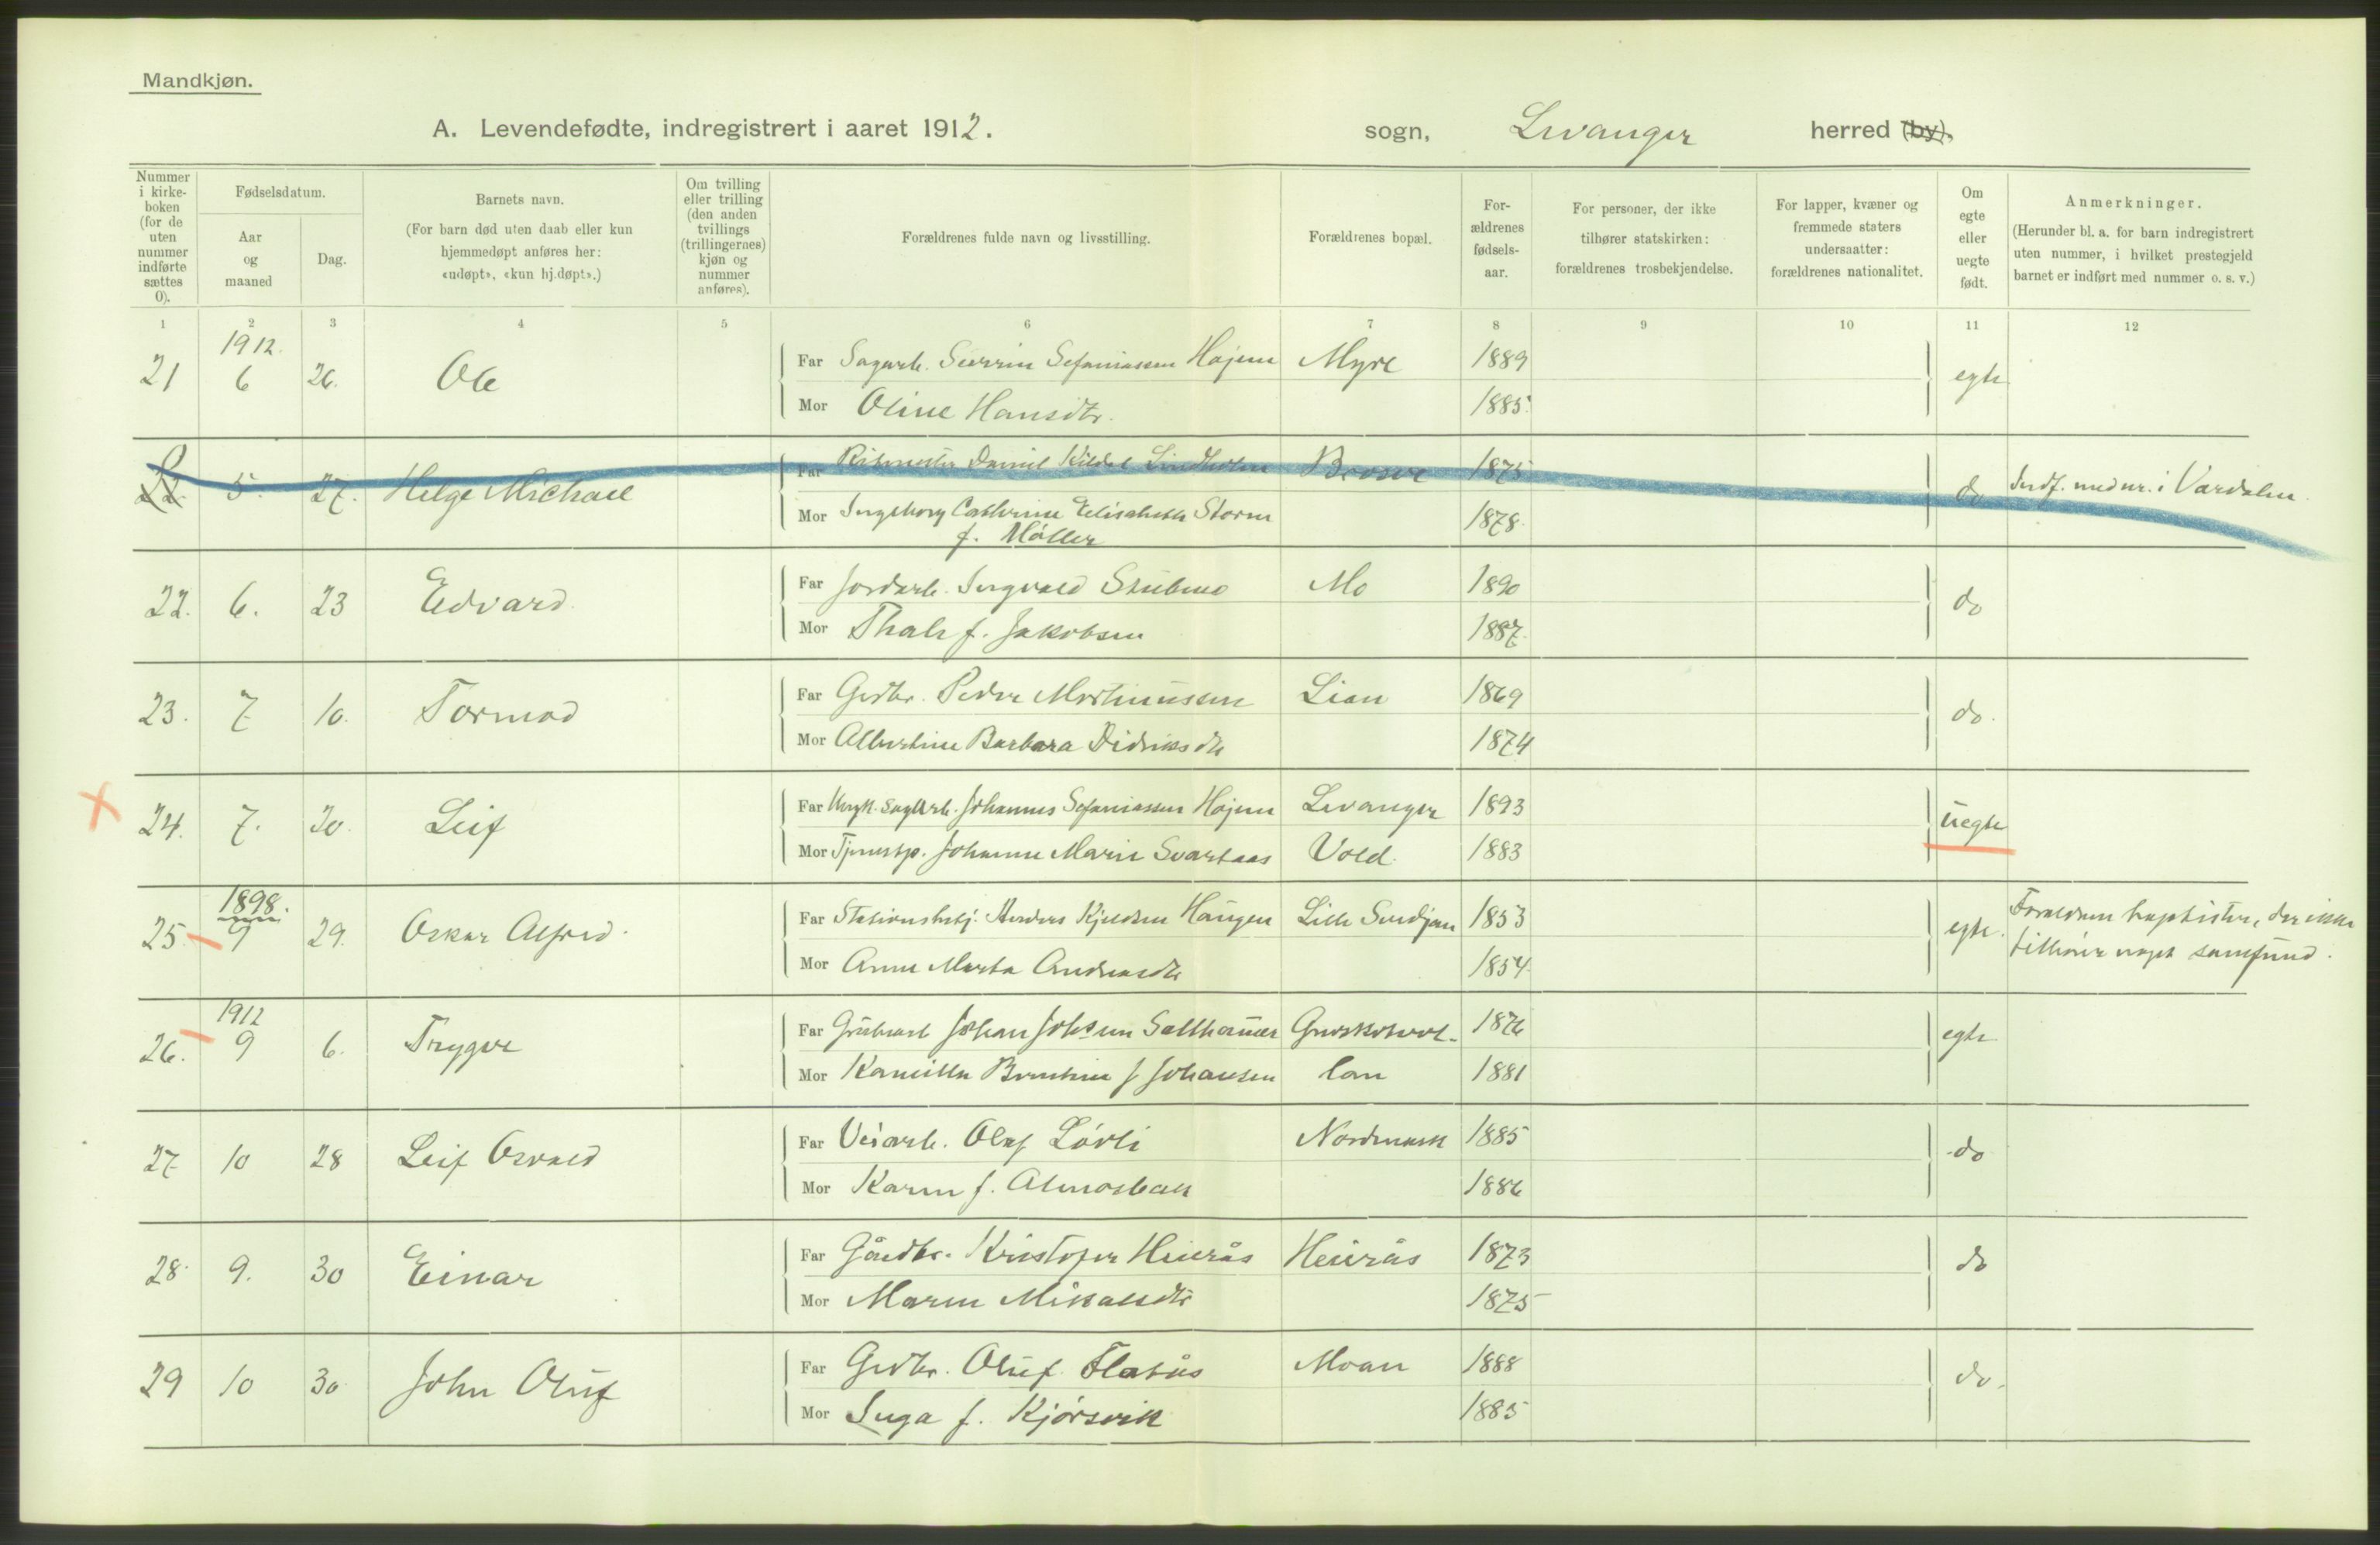 Mandkjøn.
A. Levendefødte, indregistrert i aaret 1912. sogn, Levanger herred (by).
Nummer i kirke-boken (for de uten nummer indførte sættes 0).
Fødselsdatum.
Aar og maaned
Dag.
Barnets navn.
(For barn død uten daab eller kun hjemmedøpt anføres her: «udøpt», «kun hj.døpt».)
Om tvilling eller trilling (den anden tvillings (trillingernes) kjøn og nummer anføres).
Forældrenes fulde navn og livsstilling.
Forældrenes bopæl.
For-ældrenes fødsels-aar.
For personer, der ikke tilhører statskirken: forældrenes trosbekjendelse.
For lapper, kvæner og fremmede staters undersaatter: forældrenes nationalitet.
Om egte eller uegte født.
Anmerkninger.
(Herunder bl. a. for barn indregistrert uten nummer, i hvilket prestegjeld barnet er indført med nummer o. s. v.)
1 2 3 4 5 6 7 8 9 10 11 12
1912.
21 6 26. Ole Far Sagarb. Sefaniassen Højem Myre 1889 egte
Mor Oline Hansdtr. 1885.
5. 27. Helge Michael Far Ritmester Daniel Kildal Lindholm 1875 do Indf. med nr. i Værdalen
Mor Ingeborg Cathrine Elisabeth Storm 1878.
f. Møller
22. 6. 23 Edvard. Far Jordarb. Ingvald Stubmo Mo 1890 do
Mor Thale f. Jakobsen 1887.
23. 7 10. Tormod Far Grdbr. Peder Martinussen Lian 1869 do.
Mor Albertine Barbara Didriksdtr 1874
24. 7. 20. Leif Far Ungk. Sagarb. Johannes Sefaniassen Højem Levanger 1893 uegte
Mor Tjenestp. Johanne Marie Svartaas Vold. 1883
1898.
25. 9 29. Oskar Alfred. Far Stationsbetj. Anders Kjeldsen Haugen Lille 1853 egte. Forældrene baptister, der ikke
Mor Anne Marta Andreasdtr 1854. tilhører noget samfund.
1912
26. 9 6. Trygve Far Grubearb Johan Johnsen Salthammer 1876 egte
Mor Kamilla Berntine f Johansen 1881
27 10 28 Leif Osvald Far Veiarb. Olaf Løvli Nordmark 1885 do
Mor Karen f. Almosbak 1886
28. 9. 30 Einar Far Gårdbr. Kristofer Heirås Heirås 1873 do
Mor Maren Mikalsdtr 1875
29 10 30 John Oluf Far Grdbr. Oluf Flatås Moan 1888 do.
Mor Inga f. Kjørsvik 1885